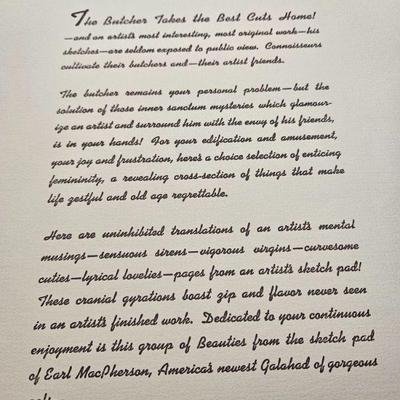 The Butcher Takes the Best Cuts Home!
—and an artist's most interesting, most original work—his
sketches—are seldom exposed to public view. Connoisseurs
cultivate their butchers and—their artist friends.
The butcher remains your personal problem—but the
solution of those inner sanctum mysteries which glamour-
ize an artist and surround him with the envy of his friends,
is in your hands! For your edification and amusement,
your joy and frustration, here's a choice selection of enticing
femininity, a revealing cross-section of things that make
life zestful and old age regrettable.
Here are uninhibited translations of an artist's mental
musings—sensuous sirens—vigorous virgins—curvesome
cuties—lyrical lovelies—pages from an artist's sketch pad!
These cranial gyrations boast zip and flavor never seen
in an artist's finished work. Dedicated to your continuous
enjoyment is this group of Beauties from the sketch pad
of Earl MacPherson, America's newest Galahad of gorgeous